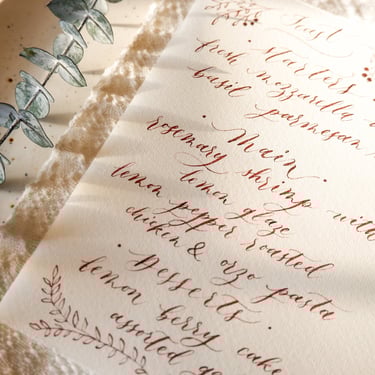 Feast
• Starters •
fresh mozzarella
basil parmesan
• Main •
rosemary shrimp with
lemon glaze
lemon pepper roasted
chicken & orzo pasta
• Desserts •
lemon berry cake
assorted